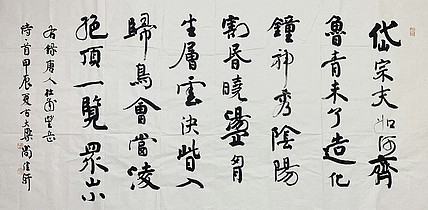 岱宗夫如何齊
魯青未了造化
鐘神秀陰陽
割昏曉盪胷
生層雲決眥入
歸鳥會當凌
絕頂一覽眾山小
右錄唐人杜甫望岳
詩一首甲辰夏古